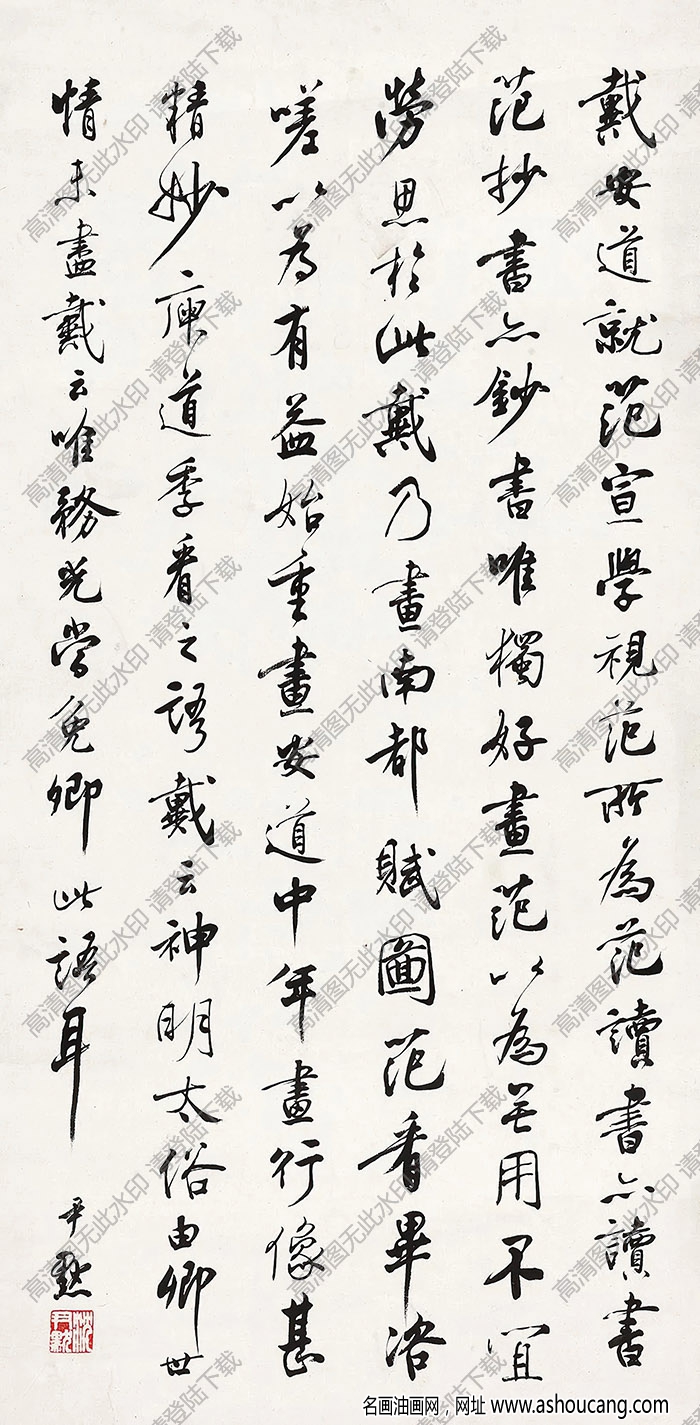 戴安道就范宣學視范所為范讀書亦讀書
范抄書亦鈔書唯獨好畫范以為無用不宜
勞思於此戴乃畫南都賦圖范看畢咨
嗟以為有益始重畫安道中年畫行像甚
精妙庾道季看之語戴云神明太俗由卿世
情未盡戴云唯務光當免卿此語耳
尹默
沈尹默
高清图无此水印 请登陆下载
名画油画网，网址 www.ashoucang.com